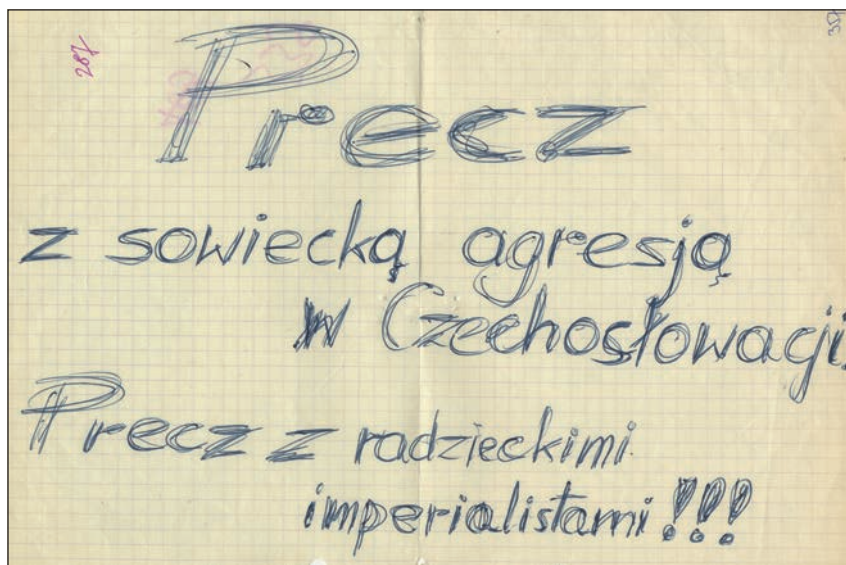 287
357
Precz
z sowiecką agresją
w Czechosłowacji.
Precz z radzieckimi
imperialistami!!!